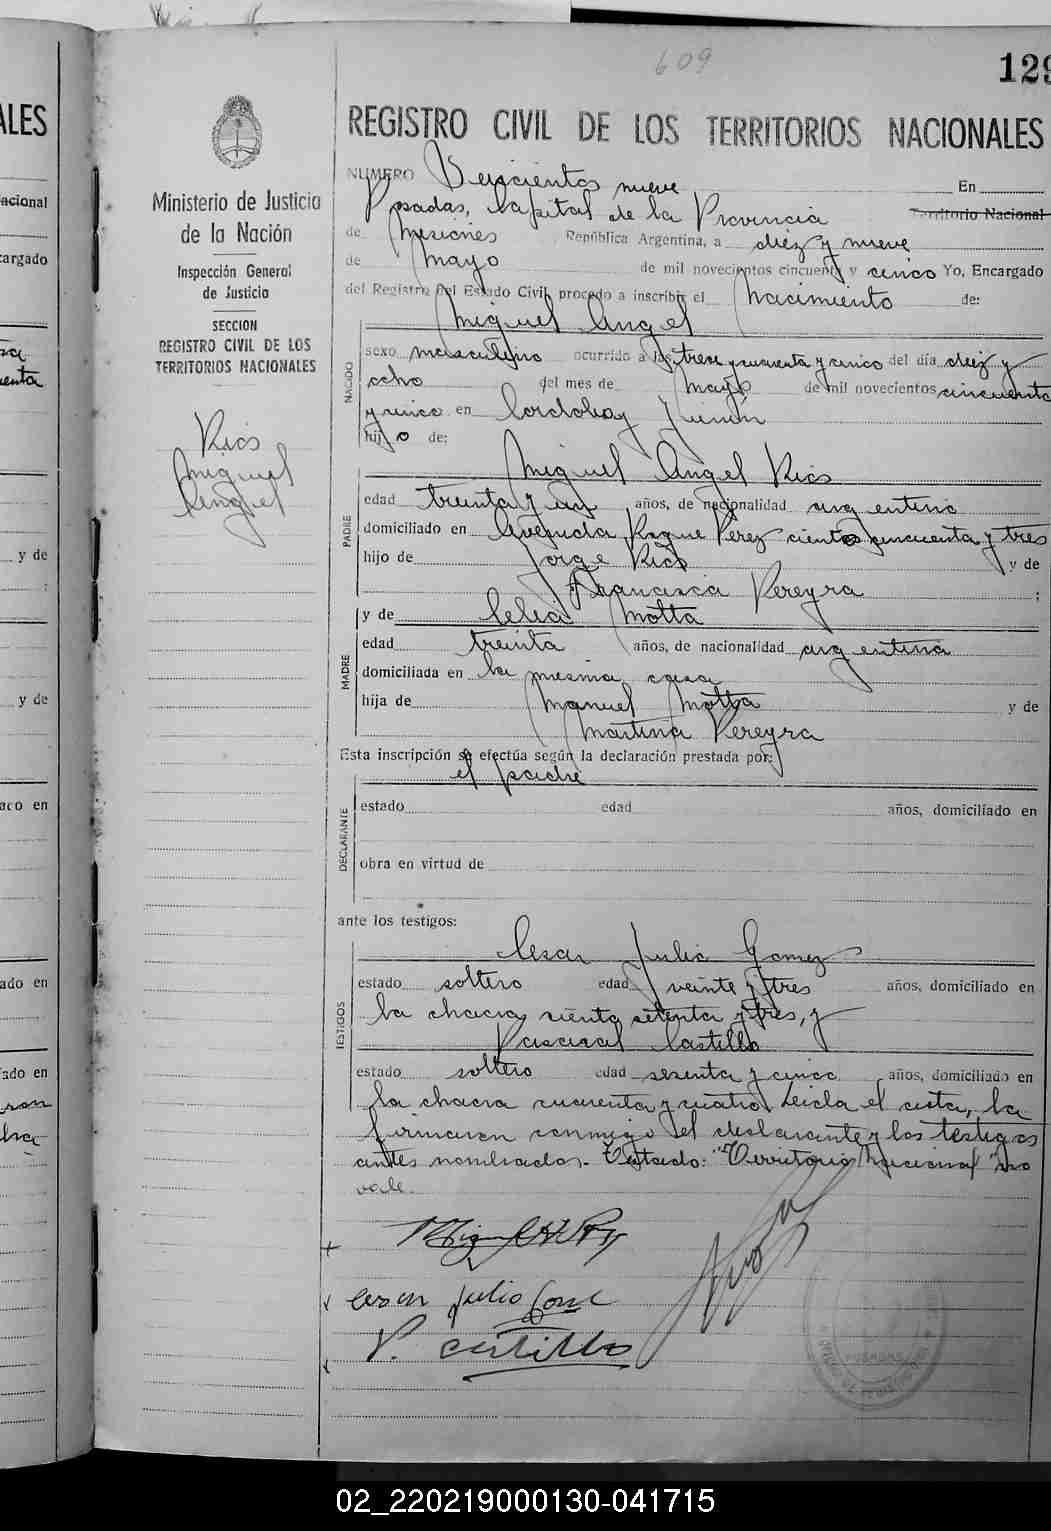 609
129
REGISTRO CIVIL DE LOS TERRITORIOS NACIONALES
NUMERO Seiscientos nueve En
Posadas, Capital de la Provincia Territorio Nacional
de Misiones República Argentina, a diez y nueve
de Mayo de mil novecientos cincuenta y cinco Yo, Encargado
del Registro del Estado Civil, procedo a inscribir el Nacimiento de:
Miguel Angel
NACIDO
sexo masculino ocurrido a las trece y cuarenta y cinco del día diez y
ocho del mes de Mayo de mil novecientos cincuenta
y cinco en Cordoba y Junin
hijo de:
Miguel Angel Rios
PADRE
edad treinta y un años, de nacionalidad argentino
domiciliado en Avenida Roque Perez ciento cincuenta y tres
hijo de Jorge Rios y de
Francisca Pereyra ;
y de Celia Motta
MADRE
edad treinta años, de nacionalidad argentina
domiciliada en la misma casa
hija de Manuel Motta y de
Martina Pereyra
Esta inscripción se efectúa según la declaración prestada por:
el padre
DECLARANTE
estado edad años, domiciliado en
obra en virtud de
ante los testigos:
Cesar Julio Gomez
TESTIGOS
estado soltero edad veinte y tres años, domiciliado en
la chacra ciento setenta y tres, y
Pascual Castillo
estado soltero edad sesenta y cinco años, domiciliado en
la chacra cuarenta y cuatro. Leida el acta, la
firmaron conmigo el declarante y los testigos
antes nombrados.- Testado: "Territorio Nacional" no
vale.
P. Castillo
Ministerio de Justicia
de la Nación
Inspección General
de Justicia
SECCION
REGISTRO CIVIL DE LOS
TERRITORIOS NACIONALES
Rios
Miguel
Angel
ALES
nacional
cargado
y de
y de
aco en
ado en
ado en
POSADAS
02_220219000130-041715